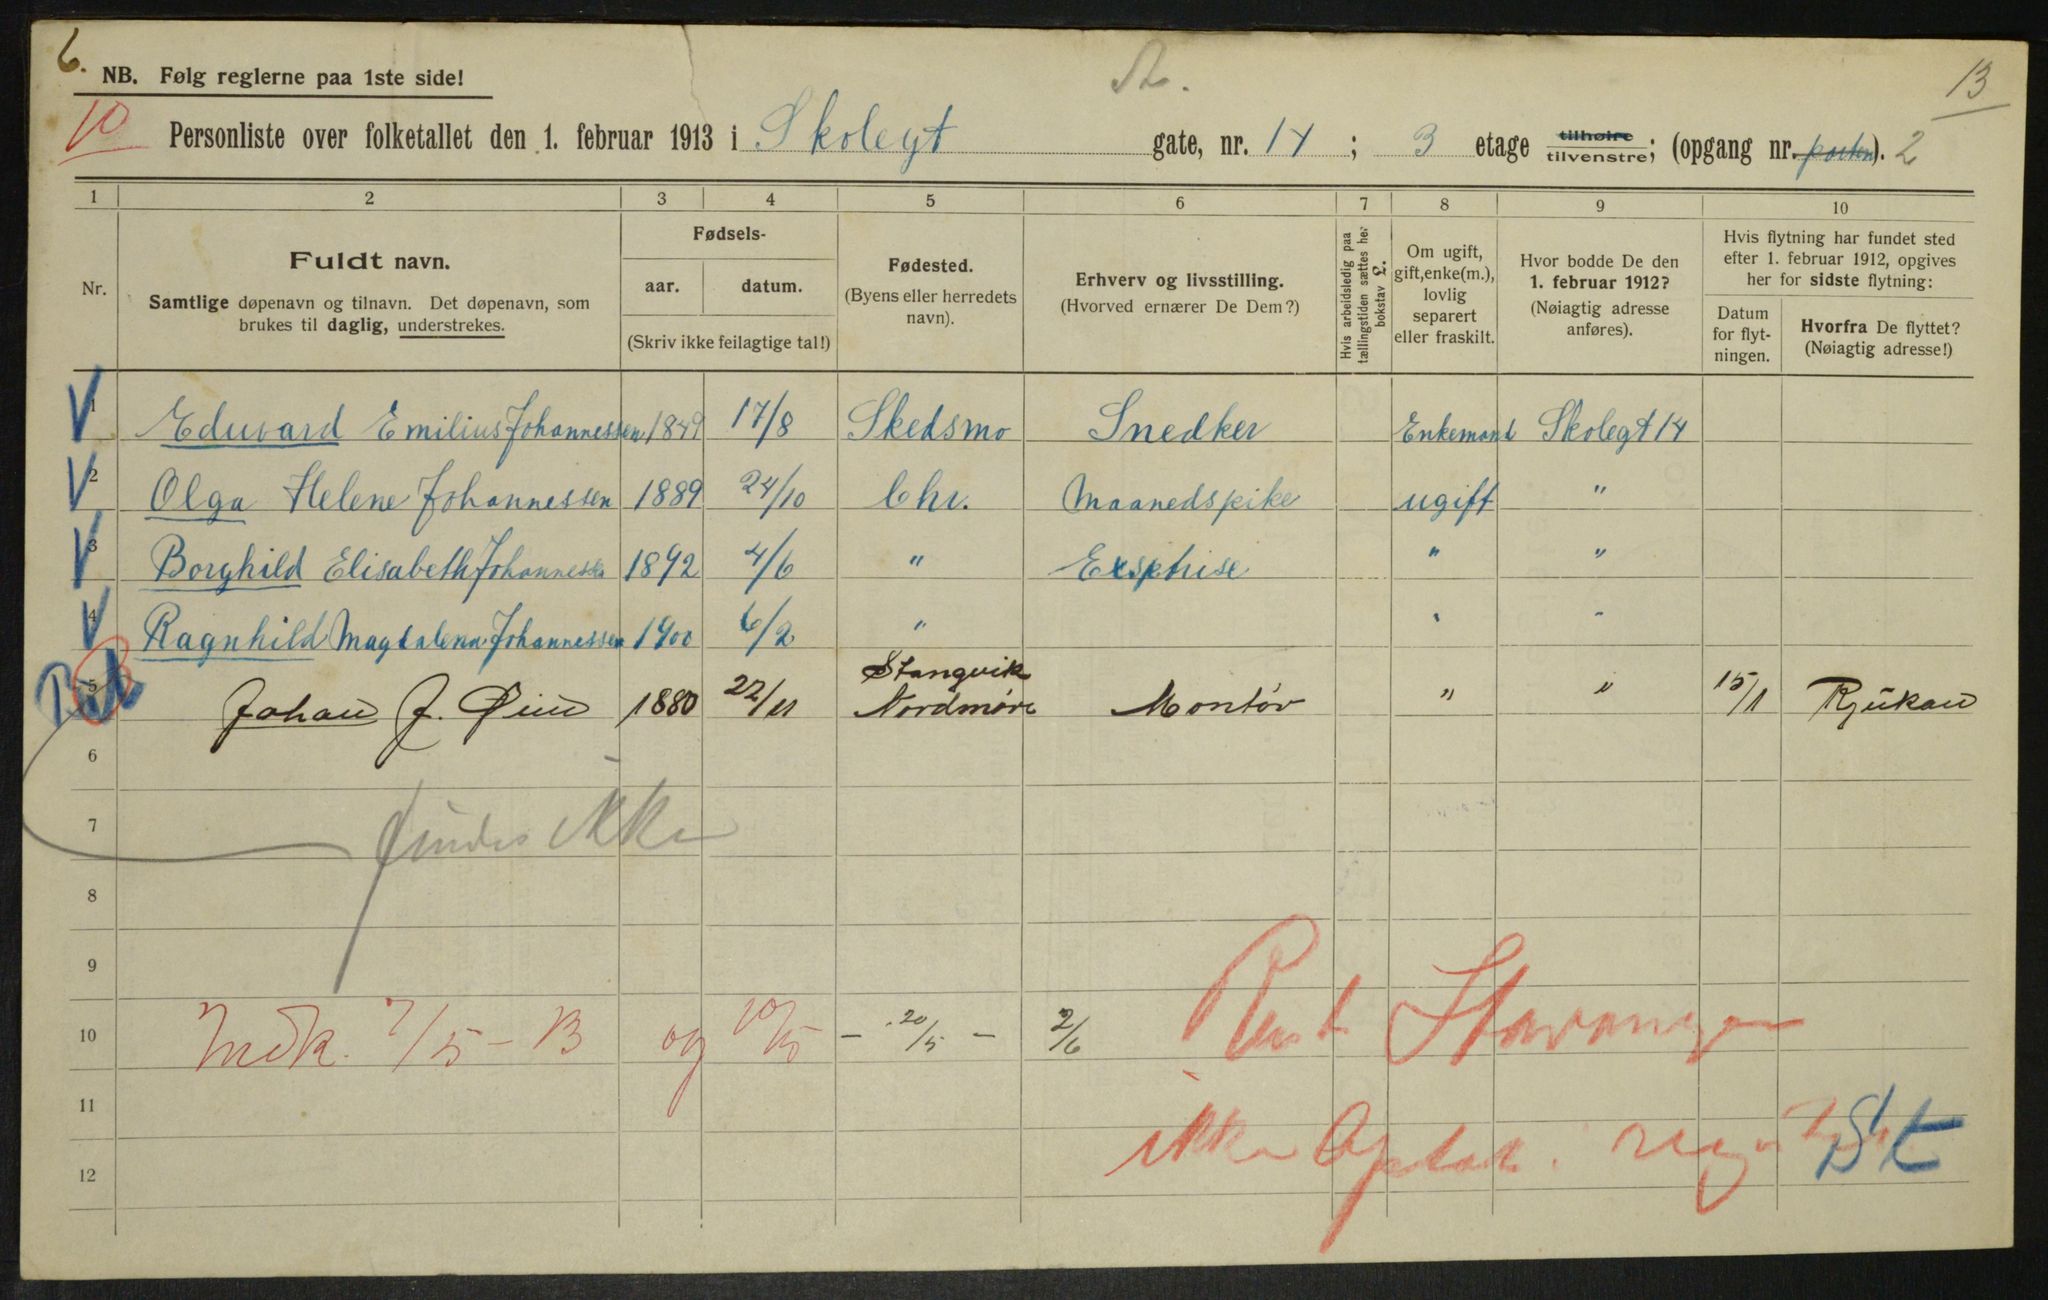 6.
NB. Følg reglerne paa 1ste side!
13
10 Personliste over folketallet den 1. februar 1913 i Skolegt gate, nr. 14 ; 3 etage tilhøire tilvenstre; (opgang nr. porten). 2
1 2 3 4 5 6 7 8 9 10
Nr.
Fuldt navn.
Samtlige døpenavn og tilnavn. Det døpenavn, som
brukes til daglig, understrekes.
Fødsels-
aar. datum.
(Skriv ikke feilagtige tal!)
Fødested.
(Byens eller herredets
navn).
Erhverv og livsstilling.
(Hvorved ernærer De Dem?)
Hvis arbeidsledig paa
tællingstiden sættes her
bokstav £.
Om ugift,
gift, enke(m.),
lovlig
separert
eller fraskilt.
Hvor bodde De den
1. februar 1912?
(Nøiagtig adresse
anføres).
Hvis flytning har fundet sted
efter 1. februar 1912, opgives
her for sidste flytning:
Datum
for flyt-
ningen.
Hvorfra De flyttet?
(Nøiagtig adresse!)
1 Edward Emilius Johannessen 1849 17/8 Skedsmo Snedker Enkemand Skolegt 14
2 Olga Helene Johannessen 1889 24/10 Chr. Maanedspike ugift "
3 Borghild Elisabeth Johannessen 1892 4/6 " Exsptrise " "
4 Ragnhild Magdalena Johannessen 1900 6/2 " " "
5 Johan J. Øien 1880 22/11 Stangvik Nordmøre Montør " " 15/1 Rjukan
6
7 findes ikke
8
9
10 Indk. 7/5 - B og 10/5 - 20/5 - 2/6 Stavanger
11
12 ikke